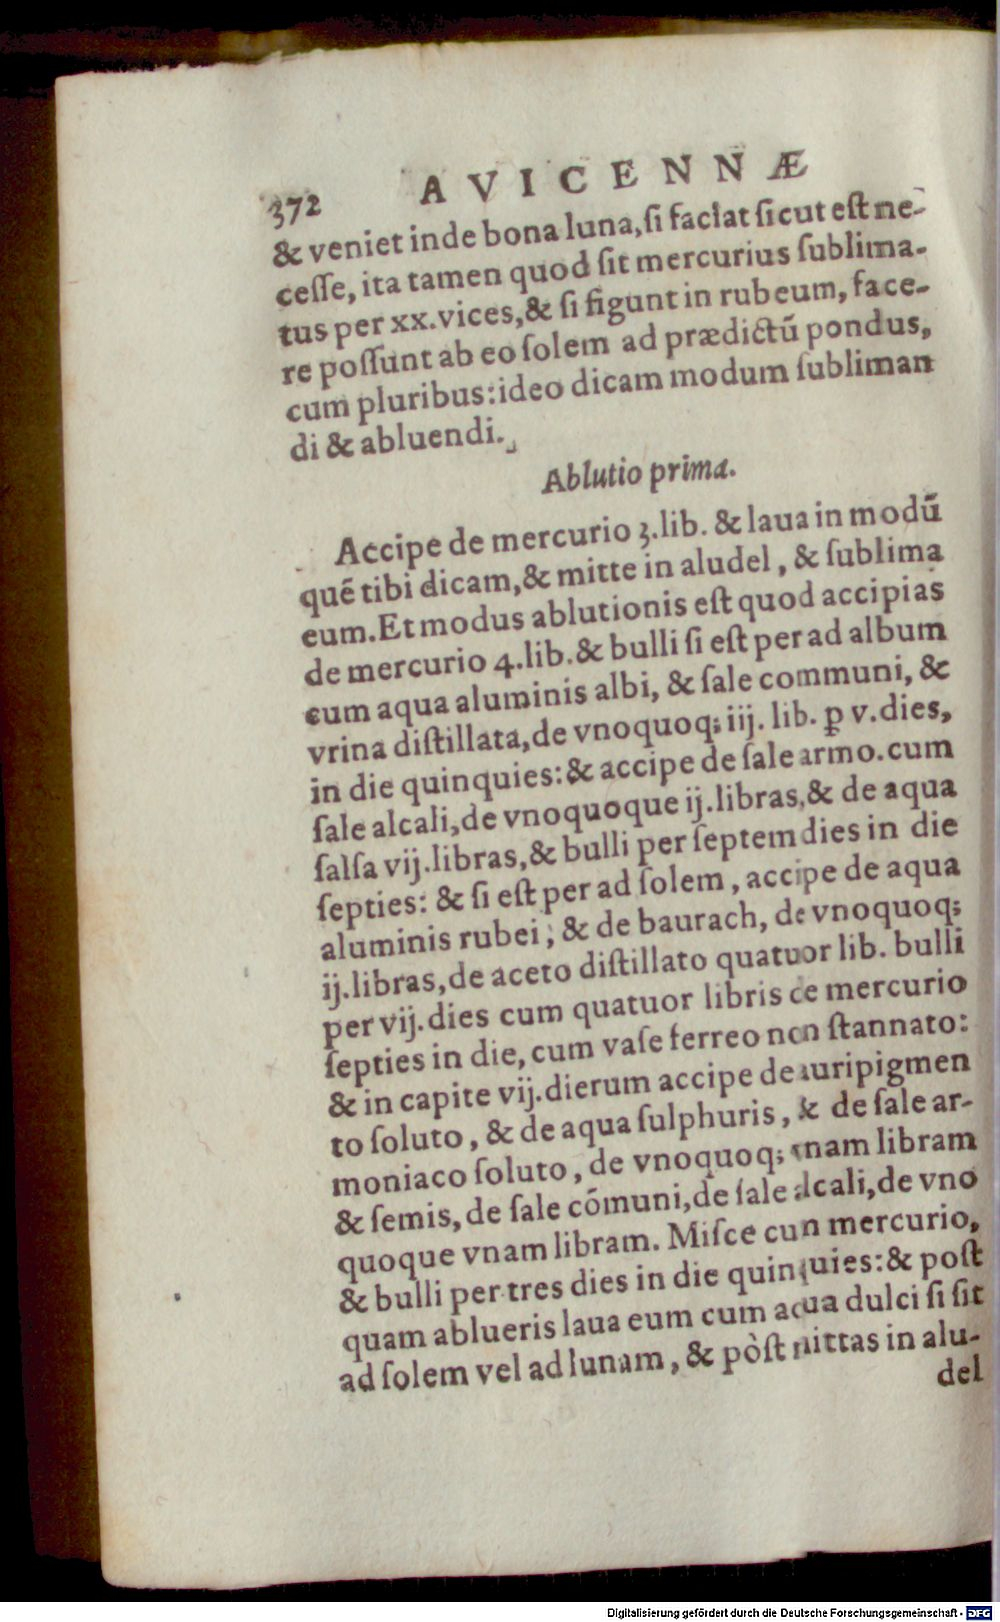 372 AVICENNÆ
& veniet inde bona luna, ſi faciat ſicut eſt ne-
ceſſe, ita tamen quod ſit mercurius ſublima-
tus per xx. vices, & ſi figunt in rubeum, face-
re poſſunt ab eo ſolem ad prædictū pondus,
cum pluribus: ideo dicam modum ſubliman
di & abluendi.
Ablutio prima.
Accipe de mercurio 3. lib. & laua in modū
quē tibi dicam, & mitte in aludel, & ſublima
eum. Et modus ablutionis eſt quod accipias
de mercurio 4. lib. & bulli ſi eſt per ad album
cum aqua aluminis albi, & ſale communi, &
vrina diſtillata, de vnoquoq; iij. lib. ꝑ v. dies,
in die quinquies: & accipe de ſale armo. cum
ſale alcali, de vnoquoque ij. libras, & de aqua
ſalſa vij. libras, & bulli per ſeptem dies in die
ſepties: & ſi eſt per ad ſolem, accipe de aqua
aluminis rubei, & de baurach, de vnoquoq;
ij. libras, de aceto diſtillato quatuor lib. bulli
per vij. dies cum quatuor libris de mercurio
ſepties in die, cum vaſe ferreo non ſtannato:
& in capite vij. dierum accipe de auripigmen
to ſoluto, & de aqua ſulphuris, & de ſale ar-
moniaco ſoluto, de vnoquoq; vnam libram
& ſemis, de ſale cōmuni, de ſale alcali, de vno
quoque vnam libram. Miſce cum mercurio,
& bulli per tres dies in die quinquies: & poſt
quam ablueris laua eum cum aqua dulci ſi ſit
ad ſolem vel ad lunam, & pòſt mittas in alu-
del
Digitalisierung gefördert durch die Deutsche Forschungsgemeinschaft - DFG